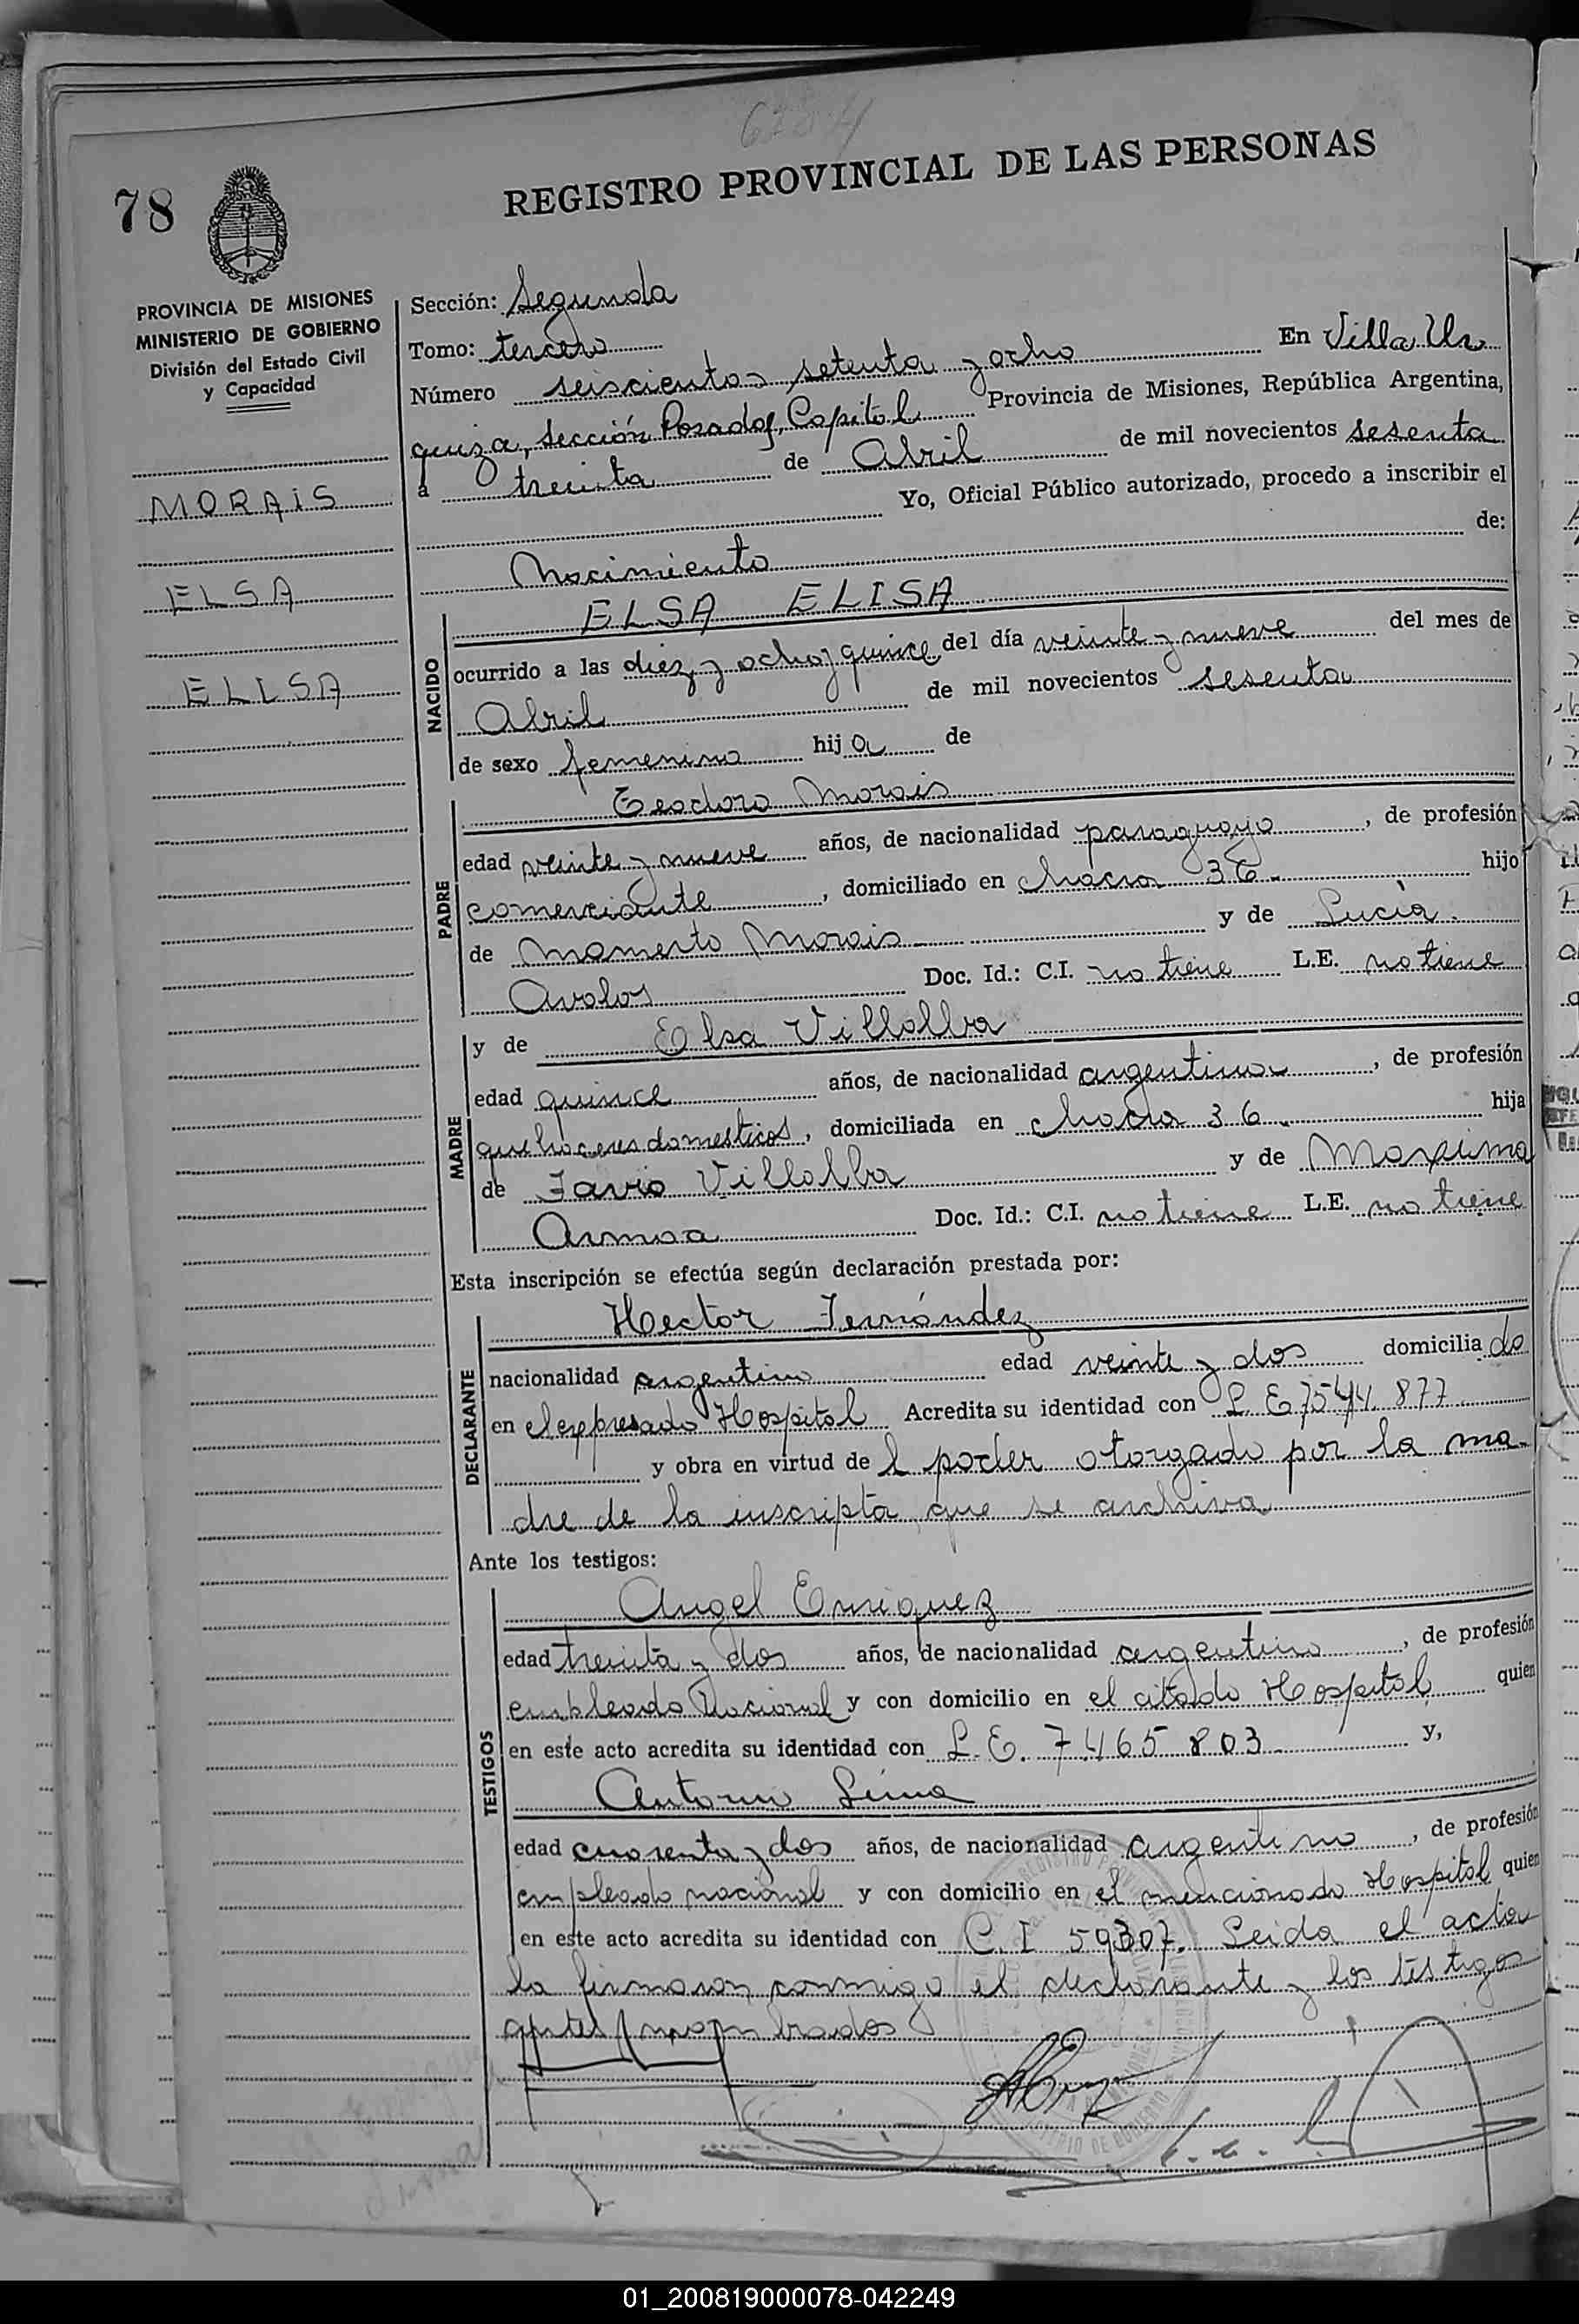 78
REGISTRO PROVINCIAL DE LAS PERSONAS
PROVINCIA DE MISIONES
MINISTERIO DE GOBIERNO
División del Estado Civil
y Capacidad
MORAIS
ELSA
ELISA
Sección: Segunda
Tomo: tercero
Número seiscientos setenta y ocho En Villa Ur
quiza, sección Posadas, Capital Provincia de Misiones, República Argentina,
a treinta de Abril de mil novecientos sesenta
Yo, Oficial Público autorizado, procedo a inscribir el
Nacimiento de:
NACIDO
ELSA ELISA
ocurrido a las diez y ocho y quince del día veinte y nueve del mes de
Abril de mil novecientos sesenta
de sexo femenino hija de
PADRE
Teodoro Morais
edad veinte y nueve años, de nacionalidad paraguayo, de profesión
comerciante, domiciliado en chacra 36. hijo
de Mamerto Morais y de Lucía
Avalos Doc. Id.: C.I. no tiene L.E. no tiene
MADRE
y de Elsa Villalba
edad quince años, de nacionalidad argentina, de profesión
quehaceres domesticos, domiciliada en chacra 36. hija
de Favio Villalba y de Maxima
Armoa Doc. Id.: C.I. no tiene L.E. no tiene
Esta inscripción se efectúa según declaración prestada por:
DECLARANTE
Hector Fernández
nacionalidad argentino edad veinte y dos domiciliado
en el expresado Hospital Acredita su identidad con L.E. 7544.877
y obra en virtud del poder otorgado por la ma-
dre de la inscripta que se archiva
Ante los testigos:
TESTIGOS
Angel Enriquez
edad treinta y dos años, de nacionalidad argentino, de profesión
empleado Nacional y con domicilio en el citado Hospital quien
en este acto acredita su identidad con L.E. 7.465803 y,
Antonio Lima
edad cuarenta y dos años, de nacionalidad argentino, de profesión
empleado nacional y con domicilio en el mencionado Hospital quien
en este acto acredita su identidad con C.I 59307. Leida el acta
la firmaron conmigo el declarante y los testigos
antes nombrados
01_200819000078-042249